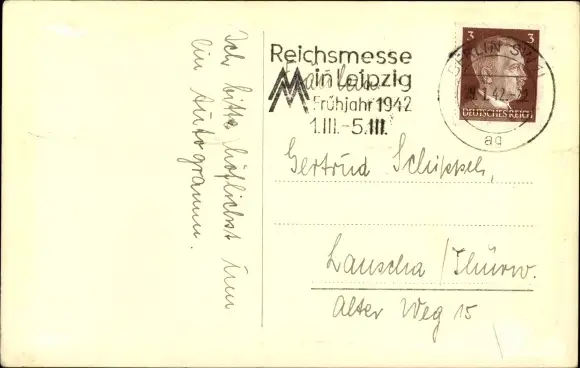 Ich bitte höflichst um
ein Autogramm.
Reichsmesse
in Leipzig
Frühjahr 1942
1.III.-5.III.
Fräulein
3 3
DEUTSCHES REICH
BERLIN SW 11
1.42.-22
ag
Gertrud Schippel,
Lauscha / Thürw.
Alter Weg 15